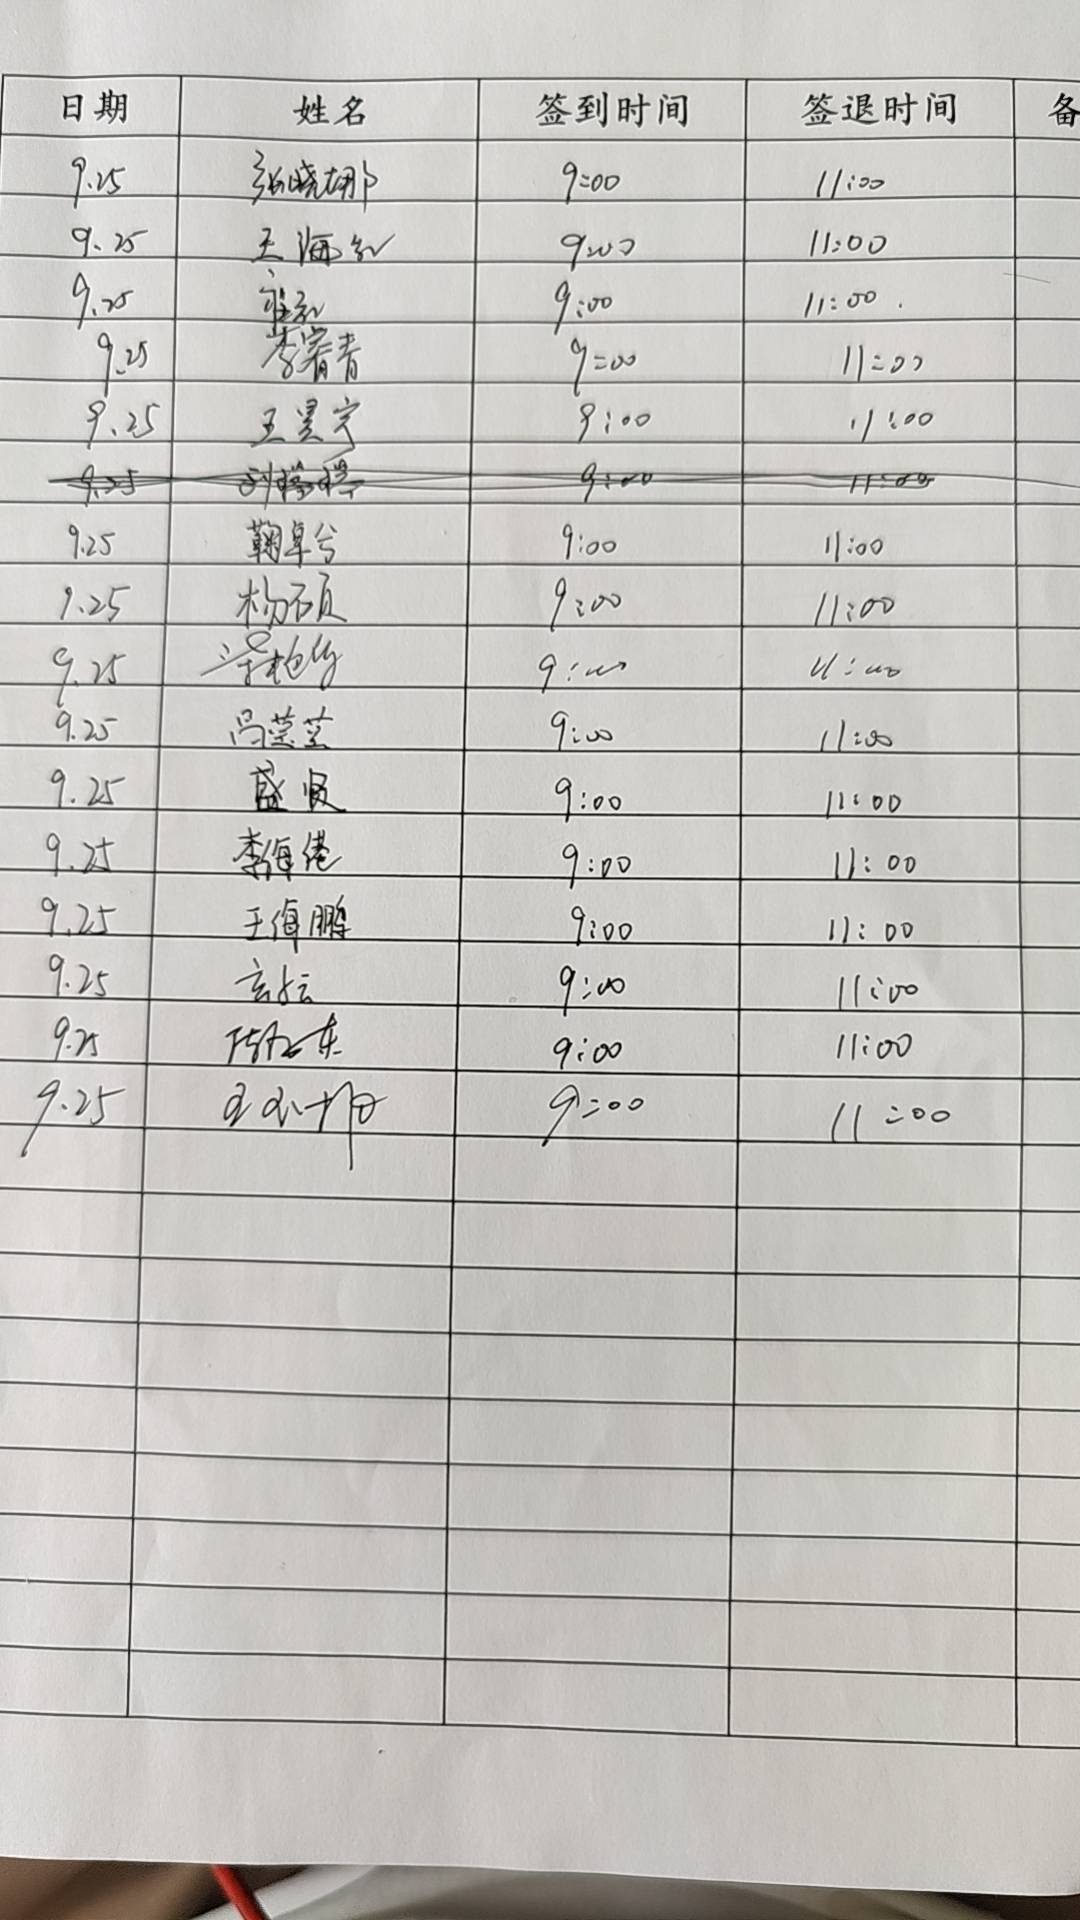 日期 姓名 签到时间 签退时间 备
9.25 张晓娜 9:00 11:00
9.25 王海红 9:00 11:00
9.25 9:00 11:00
9.25 李睿青 9:00 11:00
9.25 王昊宇 9:00 11:00
9.25 9:00 11:00
9.25 鞠卓兮 9:00 11:00
9.25 杨硕 9:00 11:00
9.25 9:00 11:00
9.25 9:00 11:00
9.25 盛夏 9:00 11:00
9.25 李海倦 9:00 11:00
9.25 王倬鹏 9:00 11:00
9.25 9:00 11:00
9.25 9:00 11:00
9.25 9:00 11:00